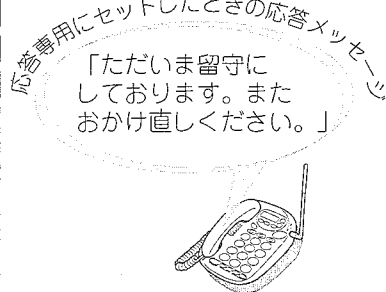 応答専用にセットしたときの応答メッセージ
「ただいま留守に
しております。また
おかけ直しください。」